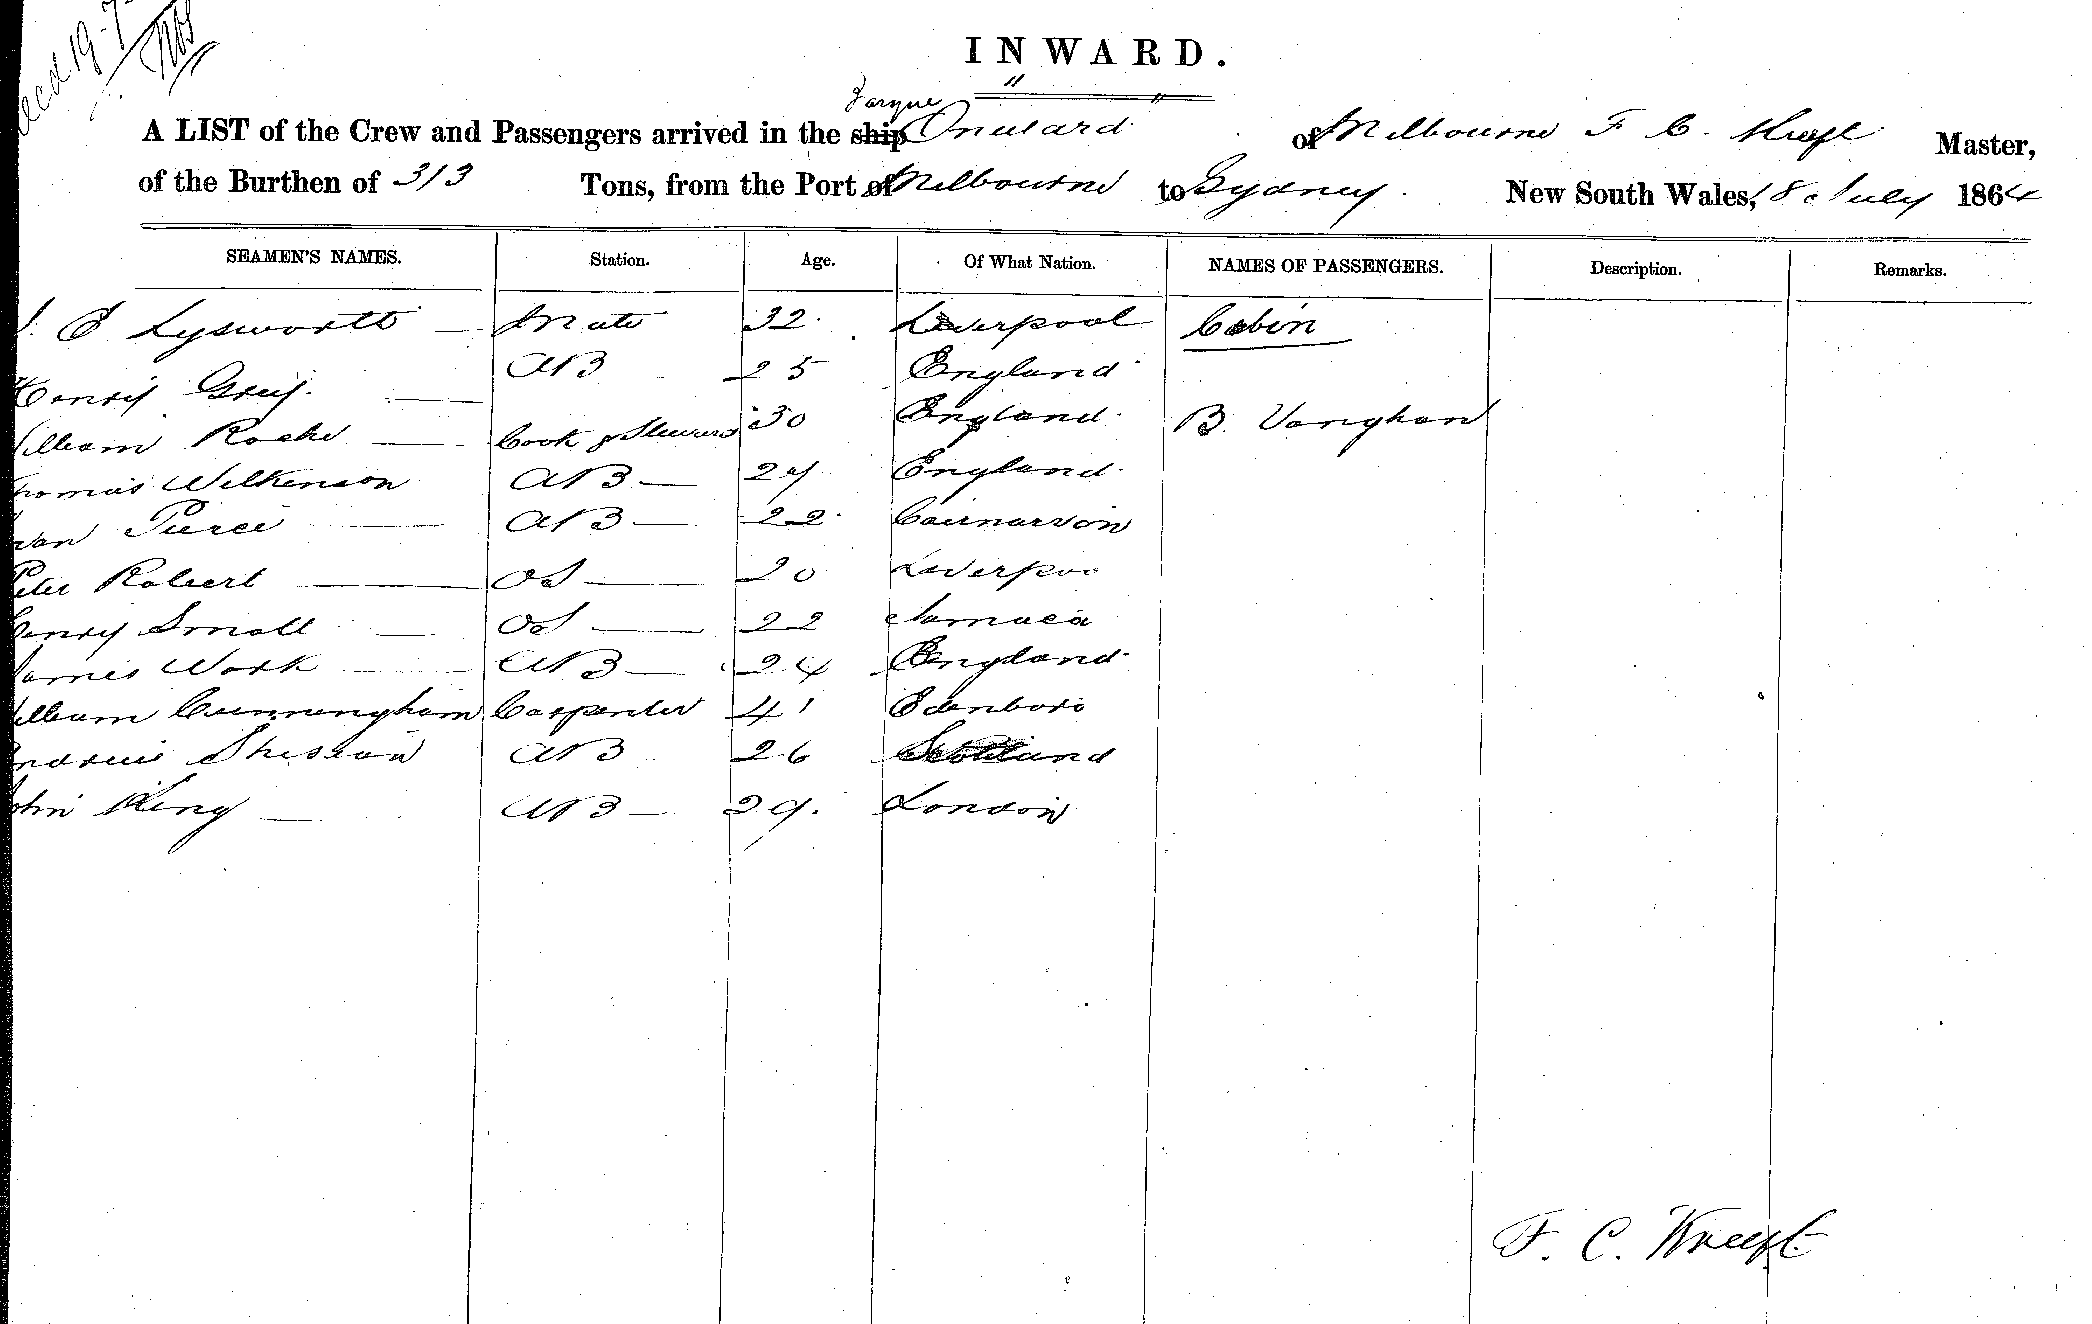 INWARD.
Barque
A LIST of the Crew and Passengers arrived in the ship Onward of Melbourne F C. Kreeft Master,
of the Burthen of 313 Tons, from the Port of Melbourne to Sydney. New South Wales, 18 July 1864
SEAMEN'S NAMES. Station. Age. Of What Nation. NAMES OF PASSENGERS. Description. Remarks.
E Lysworth — Mate 32. Liverpool Cabin
Henry Greig. — AB 25 England
William Roche — Cook & Steward 30 England B. Vaughan
Thomas Wilkinson AB — 27 England
Evan Pierce — AB — 22 Cairnarvon
Peter Robert — OS — 20 Liverpoo
Henry Small — OS — 22 Jamaca
James Work — AB — 24 England
William Cunningham Carpenter 41 Edenboro
Andrew AB 26 Scotland
John King — AB — 29. London
F. C. Kreeft